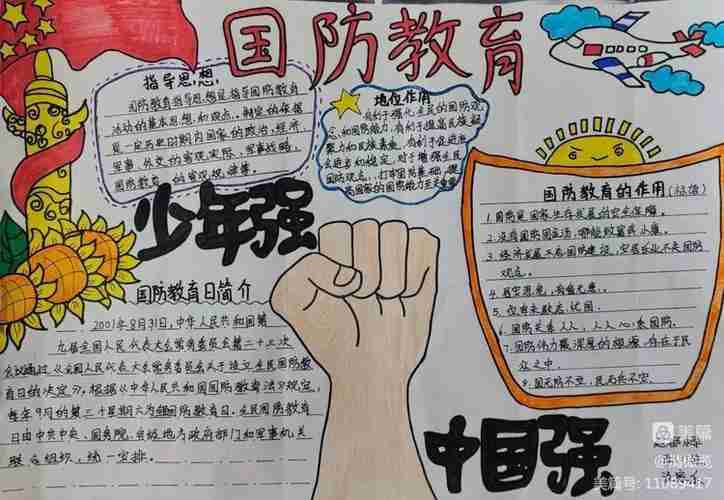 国防教育
指导思想:
国防教育指导思想是指导国防教育
活动的基本思想和观点,制定的依据
是一定历史时期内国家的政治、经济、
军事、外交的客观实际,军事战略,
国防教育的客观规律等。
地位作用
有利于强化全民的国防观
念和国防能力,有利于提高民族凝
聚力和民族素质,有利于促进社
会进步和稳定,对于增强全民
国防观点,打牢国防基础,提
高国家的国防能力至关重要
少年强
国防教育的作用(标语)
1.国防是国家生存发展的安全保障。
2.没有国防国土固,哪能致富我小康。
3.经济发展不忘国防建设,安居乐业不忘国防
观念。
4.居安思危,有备无患。
5.位卑未敢忘忧国。
6.国防关系人人,人人心系国防。
7.国防伟力最深厚的根源,存在于民
众之中
9.国无防不安,民无兵不宁。
国防教育日简介
2001年8月31日,中华人民共和国第
九届全国人民代表大会常务委员会第二十三次
会议通过《全国人民代表大会常务委员会关于设立全民国防教
育日的决定》,根据《中华人民共和国国防教育法》规定,
每年9月的第三个星期六为全国国防教育日。全民国防教育
日由中共中央、国务院、会级地方政府部门和军事机关
联合组织,统一安排。
中国强
美篇
美篇号:11089417